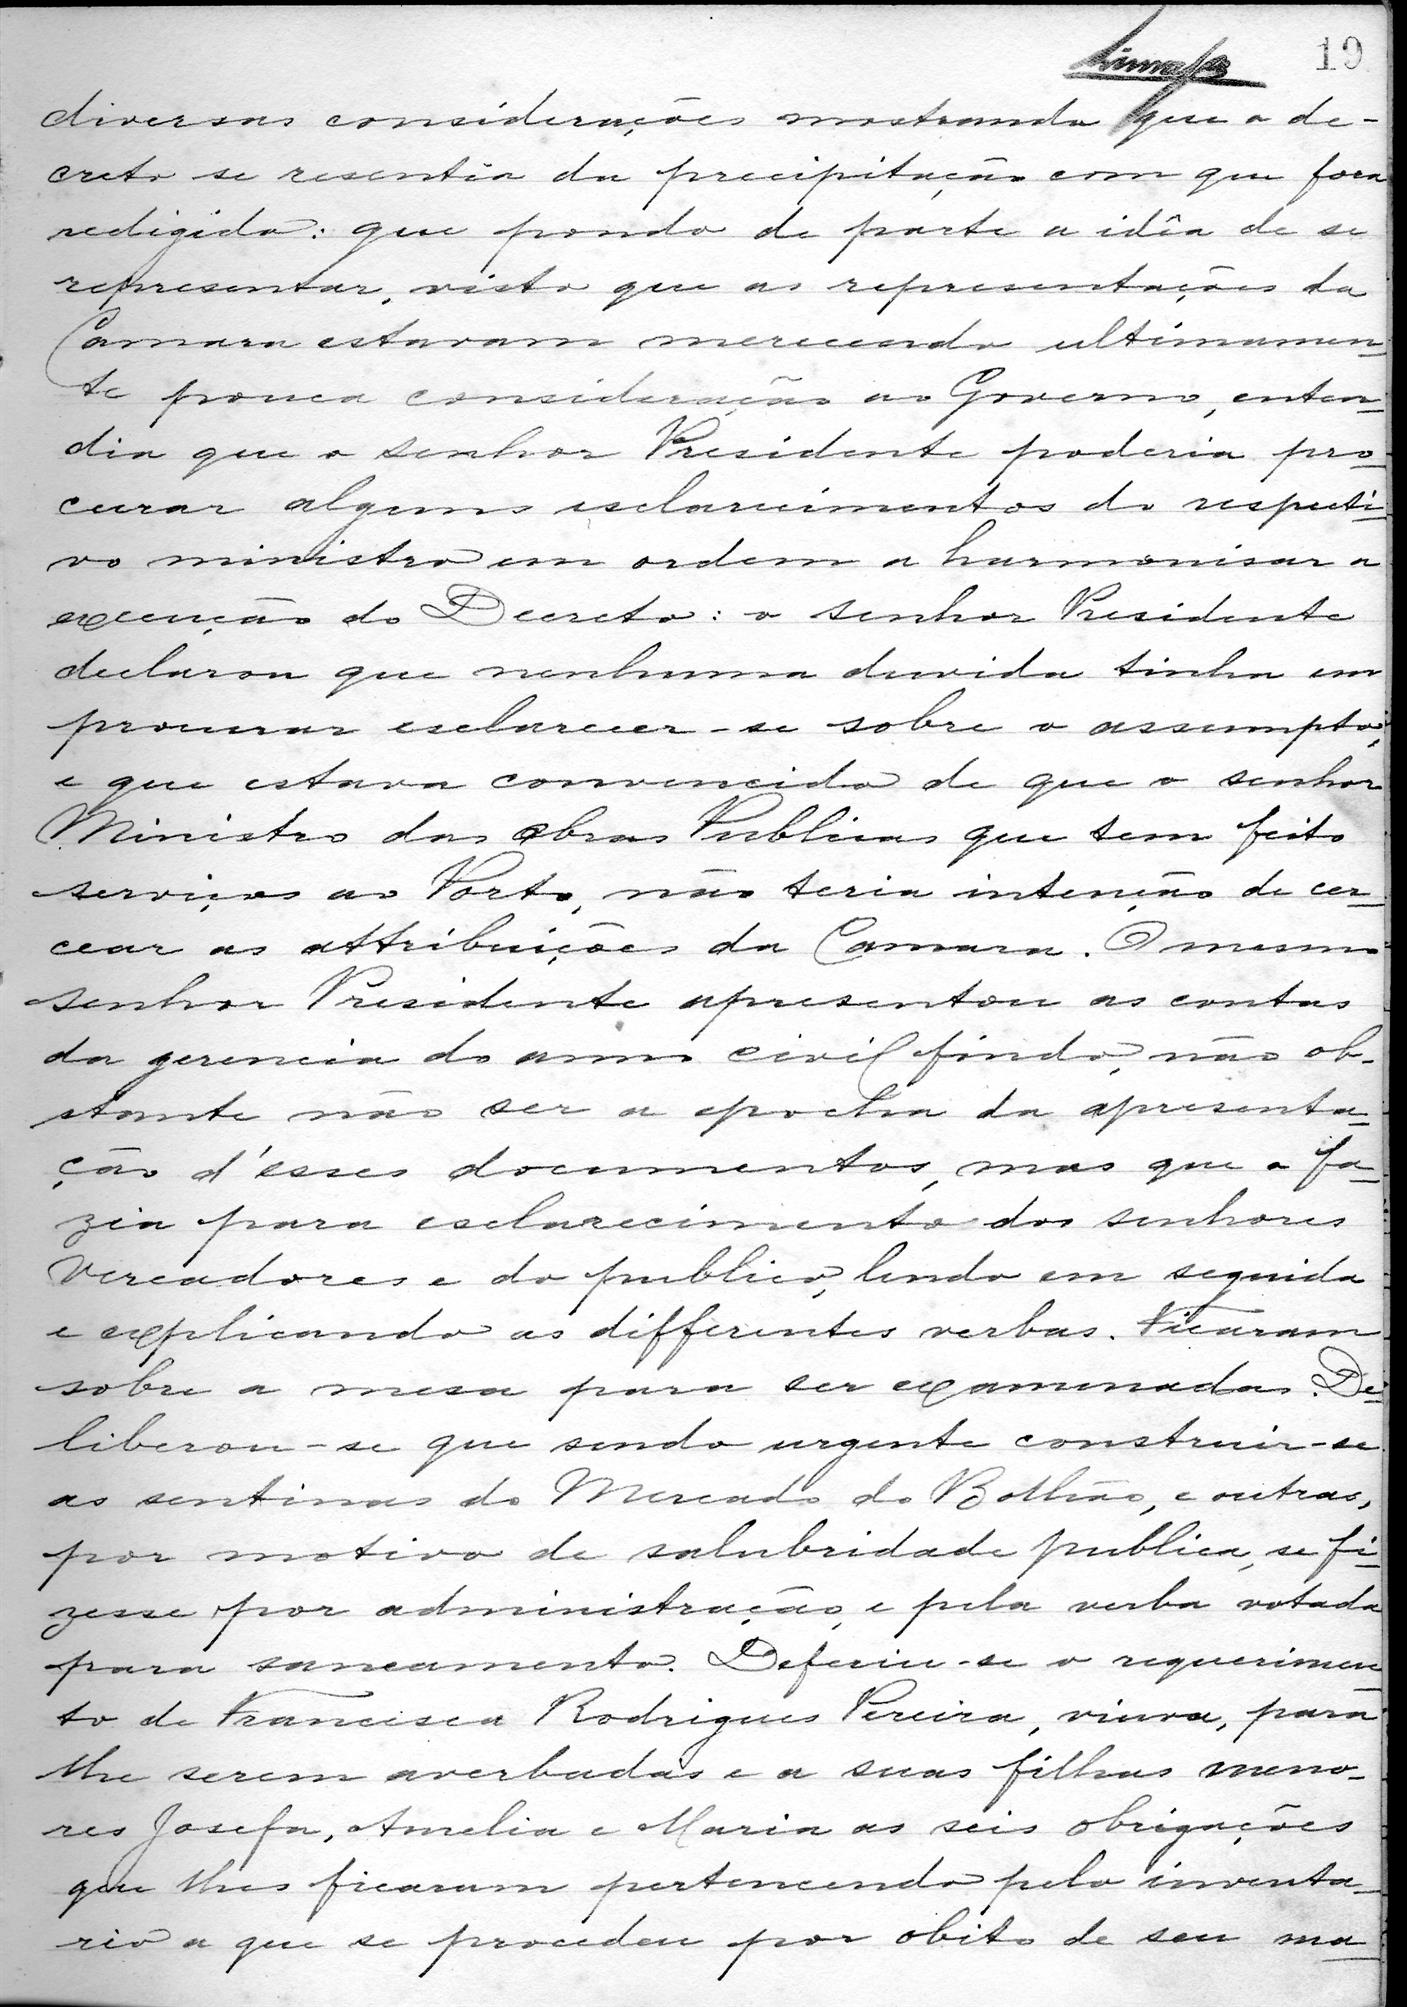 19
diversas considerações mostrando que o de-
creto se resentia da precipitação com que fora
redigido: que pondo de parte a idêa de se
representar, visto que as representações da
Camara estavam merecendo ultimamen-
te pouca consideração ao Governo, enten-
dia que o senhor Presidente poderia pro-
curar alguns esclarecimentos do respecti-
vo ministro em ordem a harmonisar a
execução do Decreto: o senhor Presidente
declarou que nenhuma duvida tinha em
procurar esclarecer-se sobre o assumpto,
e que estava convencido de que o senhor
Ministro das Obras Publicas que tem feito
serviços ao Porto, não teria intenção de cer-
cear as attribuições da Camara. O mesmo
senhor Presidente apresentou as contas
da gerencia do anno civil findo, não ob-
stante não ser a epocha da apresenta-
ção d'esses documentos, mas que o fa-
zia para esclarecimento dos senhores
Vereadores e do publico, lendo em seguida
e explicando as differentes verbas. Ficaram
sobre a mesa para ser examinadas. De-
liberou-se que sendo urgente construir-se
as sentinas do Mercado do Bolhão, e outras,
por motivo de salubridade publica, se fi-
zesse por administração, e pela verba votada
para saneamento. Deferiu-se o requerimen-
to de Francisca Rodrigues Pereira, viuva, para
lhe serem averbadas e a suas filhas meno-
res Josefa, Amelia e Maria as seis obrigações
que lhes ficaram pertencendo pelo inventa-
rio a que se procedeu por obito de seu ma-